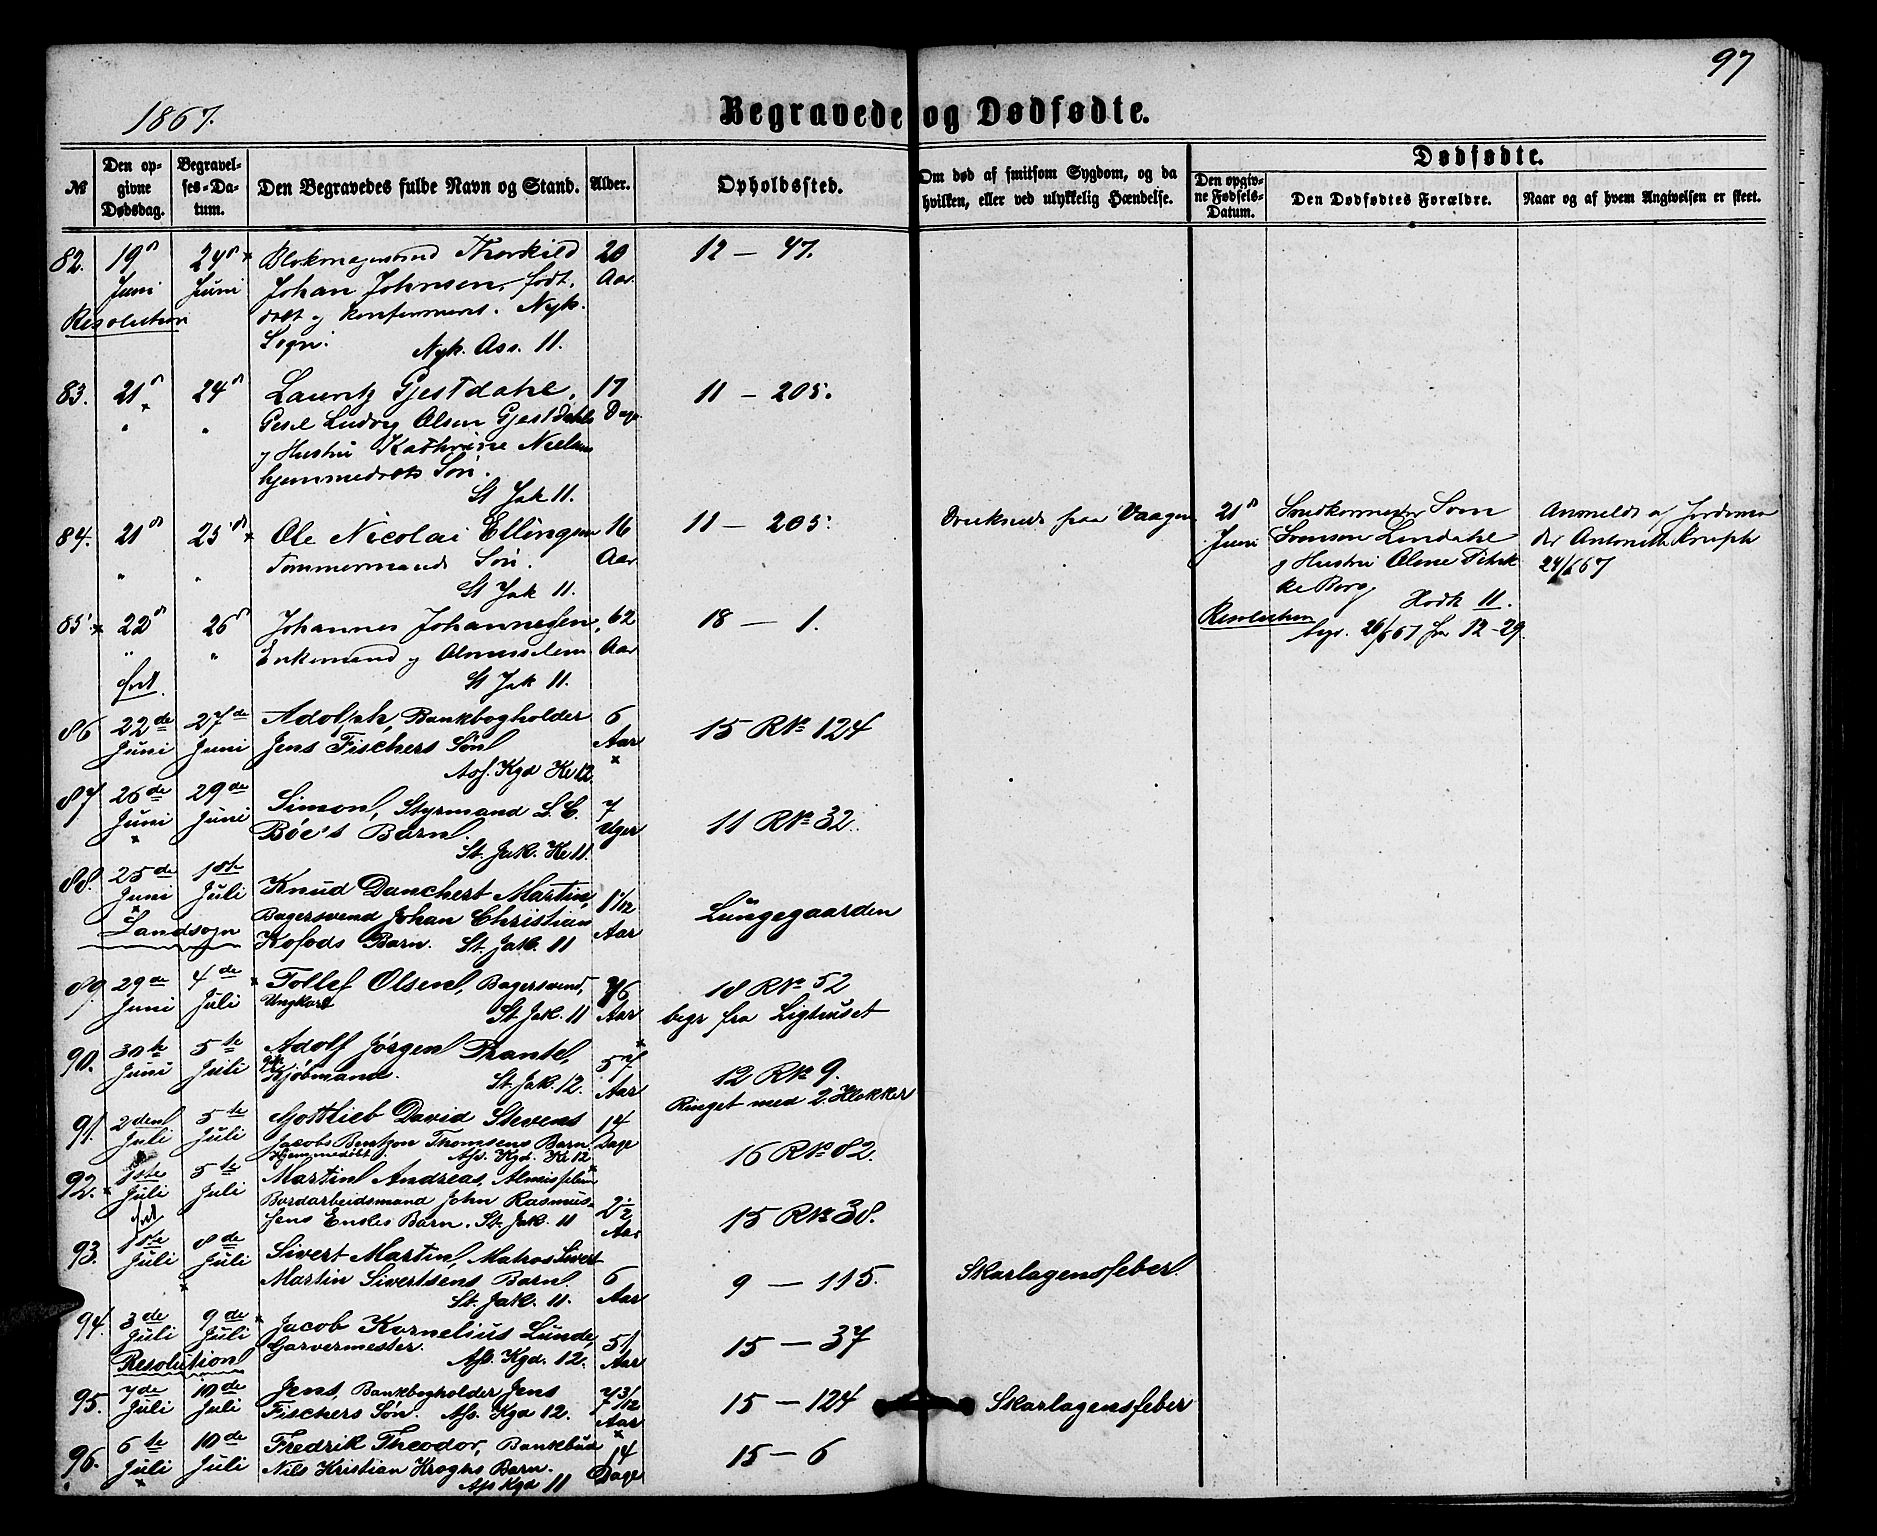 97
1867.
Begravede og Dødfødte.
№
Den opgivne Dødsdag.
Begravelses-Datum.
Den Begravedes fulde Navn og Stand.
Alder.
Opholdssted.
Om død af smitsom Sygdom, og da hvilken, eller ved ulykkelig Hændelse.
Dødfødte.
Den opgivne Fødsels-Datum.
Den Dødfødtes Forældre.
Naar og af hvem Angivelsen er skeet.
82. 19 24 Thorkild 20 12 — 47.
Juni Juni Johan Johnsen, født, Aar
Resolution døbt og konfirmeret. Nyk.
Sogn. Nyk. Ass. 11.
83. 21 24 Lauritz Gjestdahl, 17 11 — 205.
" " Ludvig Olsen Gjestdahls Dage
og Hustru Kathrine Nielsens
hjemmedøbte Søn.
St Jak 11.
84. 21 25 Ole Nicolai Ellingsen 16 11 — 205. fra Vaagen 21
" " Tømmermands Søn. Aar Juni
St Jak 11.
Lindahl
og Hustru Oline
Berg Hodk 11.
Resolution
begr. 26/6 67 fra 12 – 29.
Anmeldt af Jordemoder
24/6 67
85. 22 26 Johannes Johannesen, 62 18 — 1.
" " Enkemand og Almisselem Aar
St Jak 11.
86 22de 27de Adolph, Bankbogholder 6 15 R№ 124
Juni Juni Jens Fischers Søn Aar
Asf. Kgd Kl 12.
87 26de 29de Simon, Styrmand S. C. 7 11 R№ 32.
Juni Juni Bøe's Barn. Uger
St. Jak. Kl 11.
88. 25de 1ste Knud Danchert Martin, 1 1/12 Lungegaarden
Juni Juli Bagersvend Johan Christian Aar
Landsogn Kofods Barn. St. Jak. 11
89. 29de 4de Tollef Olsen, Bagersvend, 76 18 R№ 52
Juni Juli Ungkarl St. Jak. 11 Aar begr fra Lighuset
90. 30te 5te Adolf Jørgen Prantel, 57 12 R№ 9.
Juni Juli Kjøbmand. St. Jak. 12. Aar Ringet med 2. Klokker
91. 2den 5te Gottlieb David Stevens 14 16 R№ 82.
Juli Juli Jacobs Bentzon Thomsens Barn Dage
Hjemmedøbt. Ass. Kgd. Kl 12
92. 1ste 5te Martin Andreas, Almisselem
Juli Juli Bordarbeidsmand John Rasmus- 2 1/2 15 R№ 38.
sens Enkes Barn. St. Jak. 11 Aar
93. 1ste 8de Sivert Martin, Matros Sivert
Juli Juli Martin Sivertsens Barn. 6 9 — 115. Skarlagensfeber.
St. Jak. 11. Aar
94. 3de 9de Jacob Kornelius Lunde, 51 15 — 37
Juli Juli Garvermester. Aar
Resolution Ass. Kgd. 12.
95. 7de 10de Jens, Bankbogholder Jens 7 3/12 15 — 124 Skarlagensfeber
Juli Juli Fischers Søn. Ass. Kgd 12. Aar
96. 6te 10de Fredrik Theodor, Bankbud 14 15 — 6
Juli Juli Nils Kristian Kroghs Barn. Dage
Ass Kgd 11